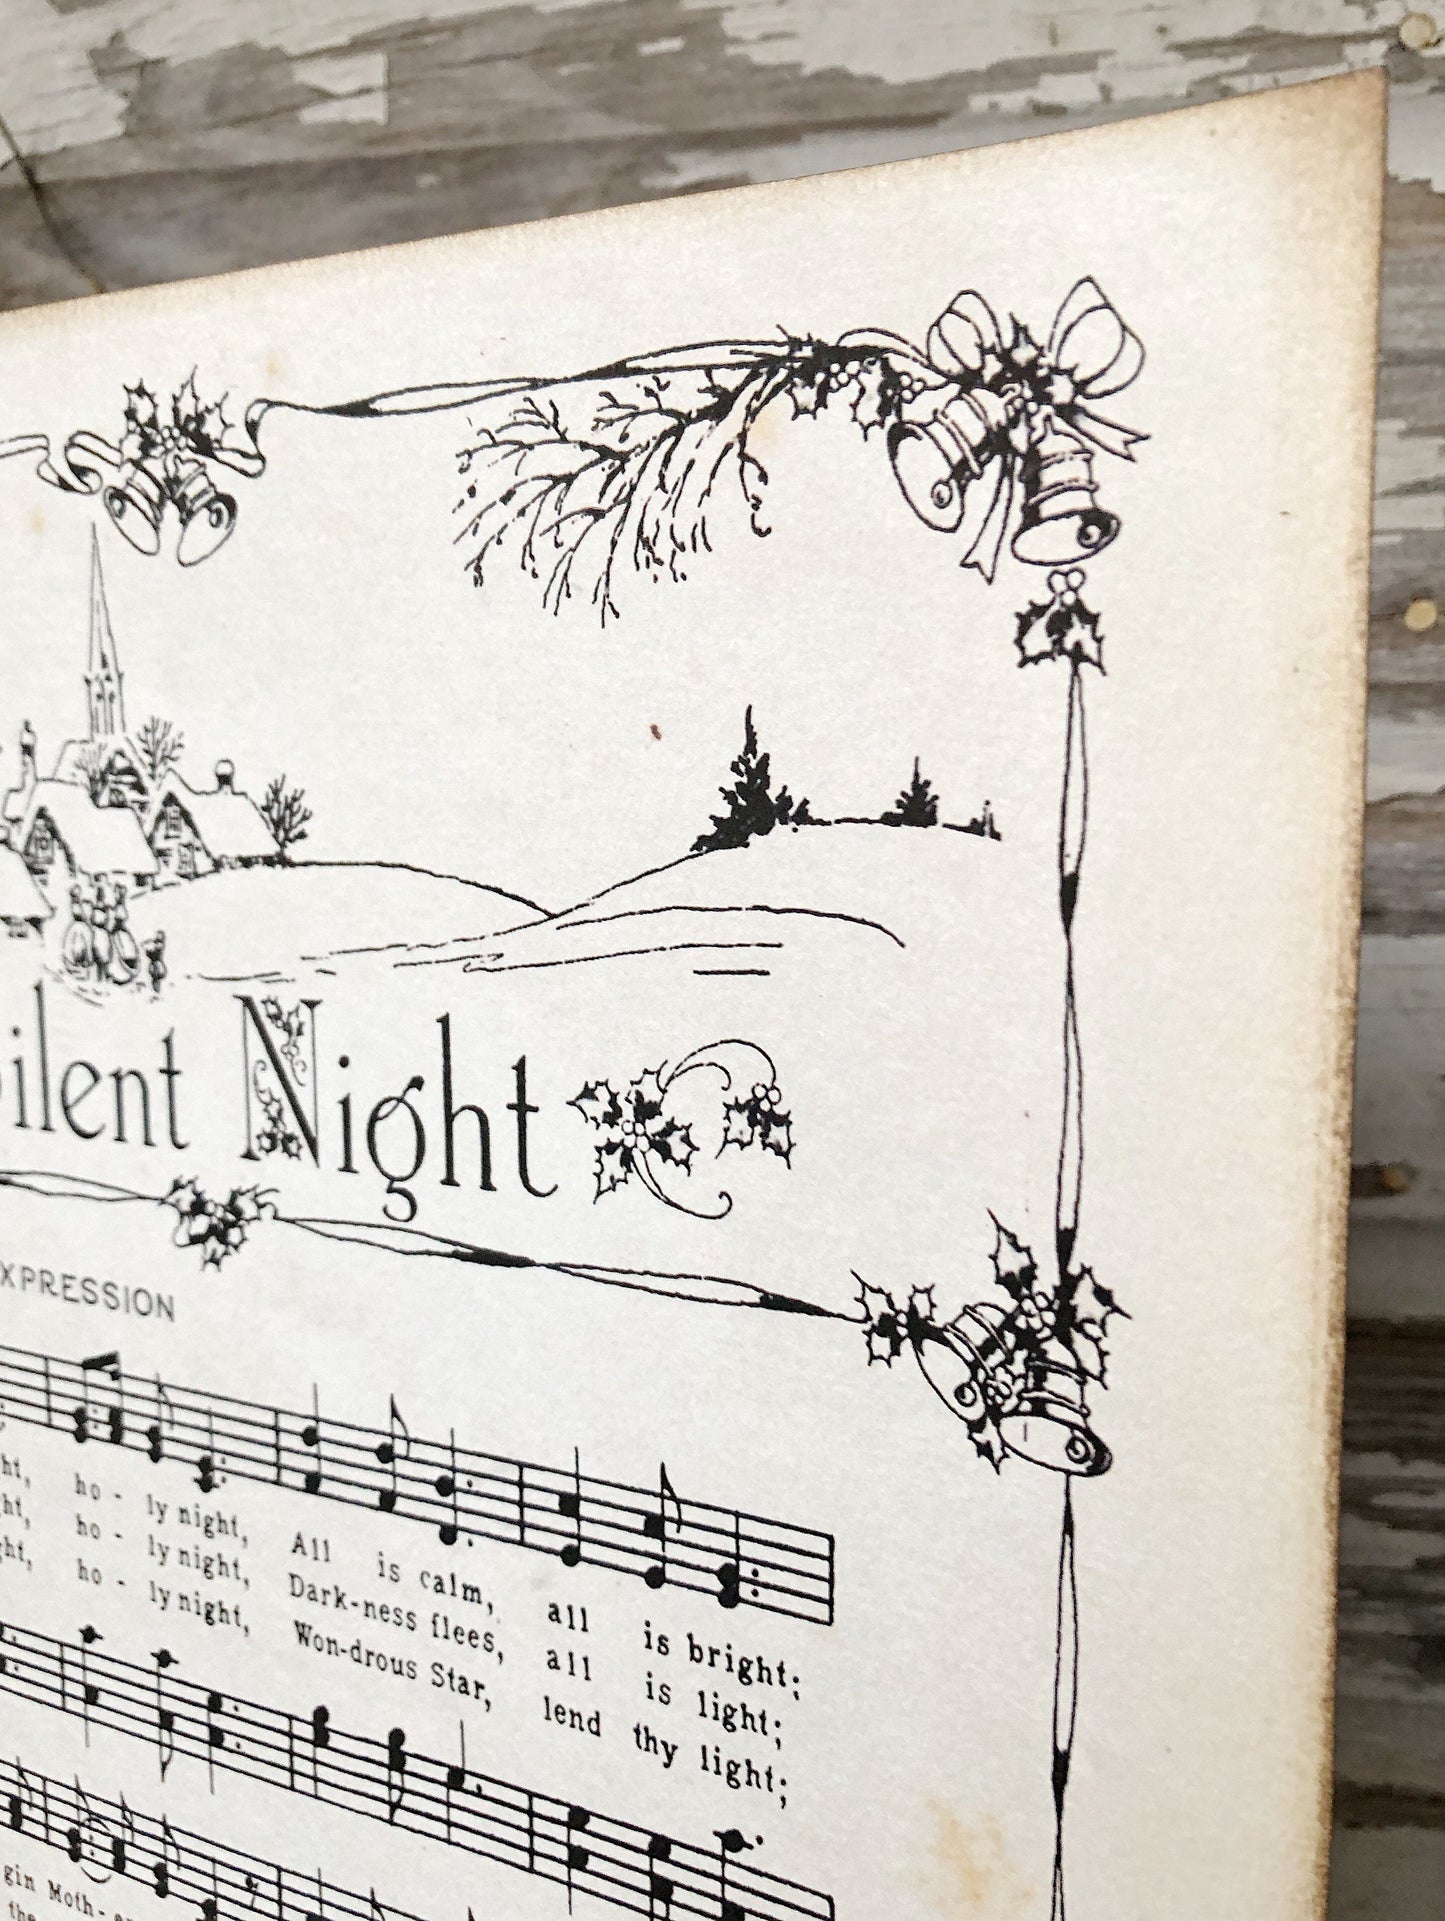 ilent Night
XPRESSION
ht, ho - ly night, All is calm, all is bright;
ght, ho - ly night, Dark-ness flees, all is light;
ght, ho - ly night, Won-drous Star, lend thy light;
gin Moth-
the